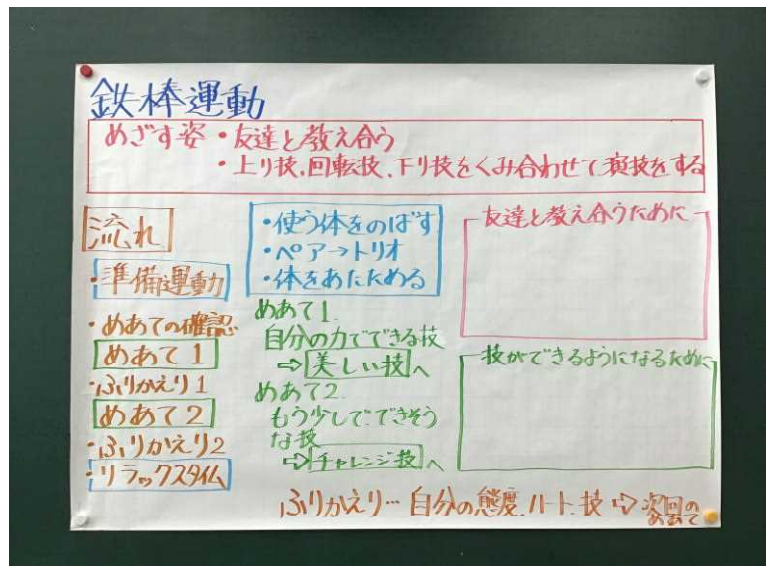 鉄棒運動
めざす姿・友達と教え合う
・上り技、回転技、下り技をくみ合わせて演技をする
流れ
・準備運動
・めあての確認
めあて1
・ふりかえり1
めあて2
・ふりかえり2
・リラックスタイム
・使う体をのばす
・ペア→トリオ
・体をあたためる
めあて1.
自分の力でできる技
⇨美しい技へ
めあて2.
もう少しでできそう
な技
⇨チャレンジ技へ
友達と教え合うために
技ができるようになるために
ふりかえり…自分の態度、ハート、技⇨次回の
めあて